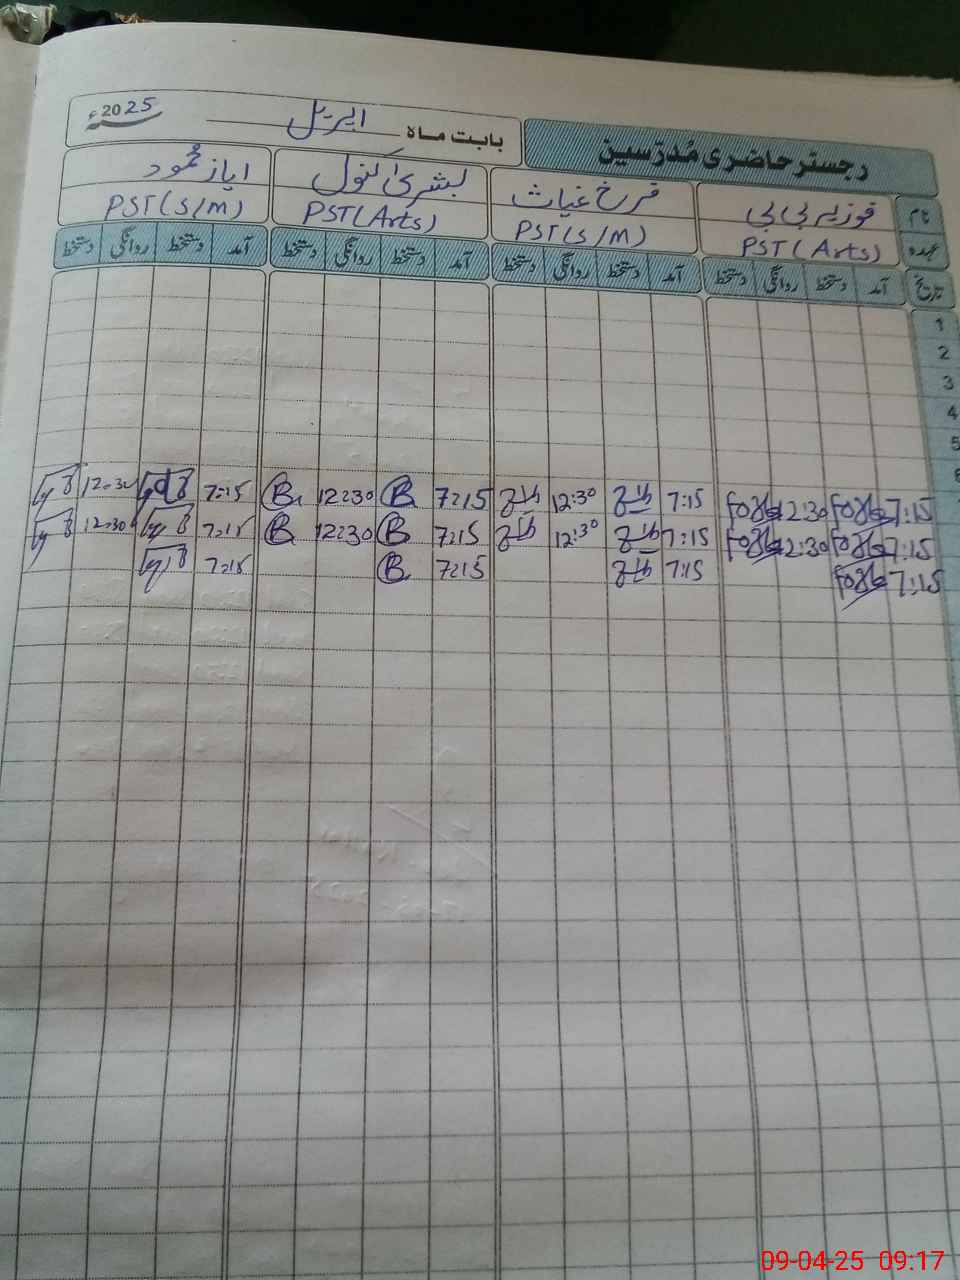 رجسٹر حاضری مُدرّسین
بابت ماہ اپریل 2025ء
نام فوزیہ بی بی فرخ غیاث بشریٰ کنول ایاز محمود
عہدہ PST (Arts) PST (S/M) PST (Arts) PST (S/M)
تاریخ آمد دستخط روانگی دستخط آمد دستخط روانگی دستخط آمد دستخط روانگی دستخط آمد دستخط روانگی دستخط
1
2
3
4
5
6
7:15 2:30 7:15 12:30 7:15 B 12:30 B 7:15 12:30
7:15 2:30 7:15 12:30 7:15 B 12:30 B 7:15 12:30
7:15 7:15 7:15 B 7:15
09-04-25 09:17